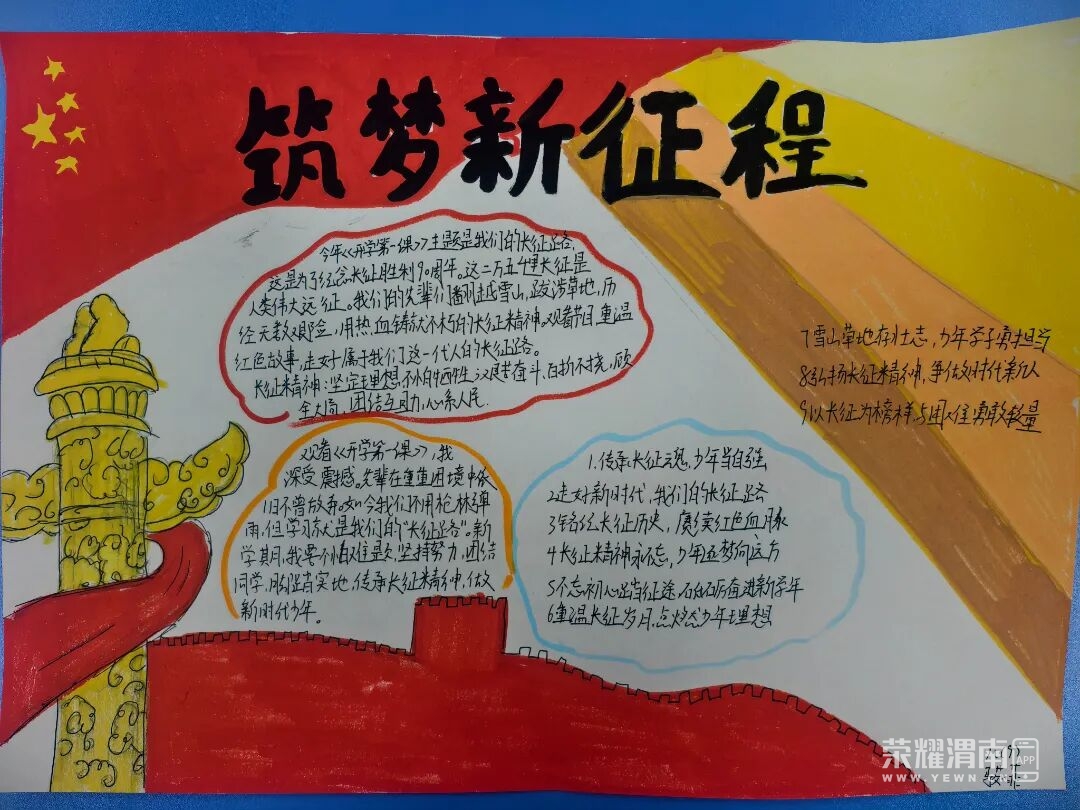 筑梦新征程
今年《开学第一课》主题是我们的长征路,
这是为了纪念长征胜利90周年。这二万五千里长征是
人类伟大远征。我们的先辈们翻越雪山,跋涉草地,历
经无数艰险,用热血铸就不朽的长征精神。观看节目,重温
红色故事,走好属于我们这一代人的长征路。
长征精神:坚定理想,不怕牺牲,艰苦奋斗,百折不挠,顾
全大局,团结互助,心系人民.
观看《开学第一课》,我
深受震撼。先辈在重重困境中依
旧不曾放弃。如今我们不用枪林弹
雨,但学习就是我们的“长征路”。新
学期,我要不怕难题,坚持努力,团结
同学,脚踏实地,传承长征精神,做
新时代少年。
1.传承长征魂,少年当自强
2走好新时代,我们的长征路
3铭纪长征历史,赓续红色血脉
4长征精神永志,少年逐梦向远方
5不忘初心踏征途,砥砺奋进新学年
6重温长征岁月,点燃少年理想
7雪山草地存壮志,少年学子勇担当
8弘扬长征精神,争做好时代新人
9以长征为榜样,与困难勇敢较量
荣耀渭南
APP
WWW.YEWN